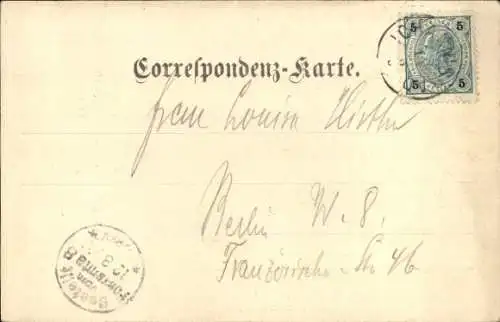 5 5
Correspondenz-Karte.
5 5
Frau Louise
Berlin W. 8.
Französische Str 46
Bestellt
vom
Postamte 8